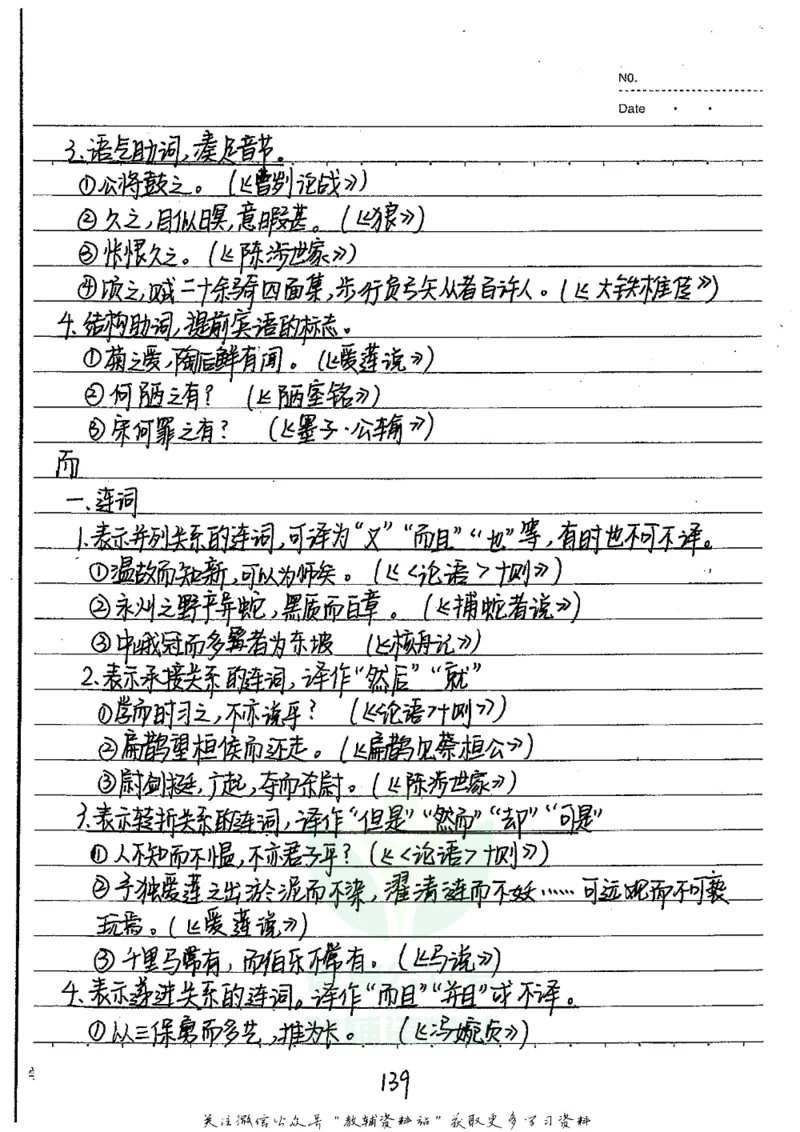 NO.
Date
3.语气助词,凑足音节。
①公将鼓之。(《曹刿论战》)
②久之,目似瞑,意暇甚。(《狼》)
③怅恨久之。(《陈涉世家》)
④顷之,贼二十余骑四面集,步行负弓矢从者百许人。(《大铁椎传》)
4.结构助词,提前宾语的标志。
①菊之爱,陶后鲜有闻。(《爱莲说》)
②何陋之有?(《陋室铭》)
③宋何罪之有?(《墨子·公输》)
而
一、连词
1.表示并列关系的连词,可译为“又”“而且”“也”等,有时也不可不译。
①温故而知新,可以为师矣。(《<论语>十则》)
②永州之野产异蛇,黑质而白章。(《捕蛇者说》)
③中峨冠而多髯者为东坡 (《核舟记》)
2.表示承接关系的连词,译作“然后”“就”
①学而时习之,不亦说乎?(《<论语>十则》)
②扁鹊望桓侯而还走。(《扁鹊见蔡桓公》)
③尉剑挺,广起,夺而杀尉。(《陈涉世家》)
3.表示转折关系的连词,译作“但是”“然而”“却”“可是”
①人不知而不愠,不亦君子乎?(《<论语>十则》)
②予独爱莲之出淤泥而不染,濯清涟而不妖……可远观而不可亵
玩焉。(《爱莲说》)
③千里马常有,而伯乐不常有。(《马说》)
4.表示递进关系的连词。译作“而且”“并且”或不译。
①以三保勇而多艺,推为长。(《冯婉贞》)
139
关注微信公众号“教辅资料站”获取更多学习资料